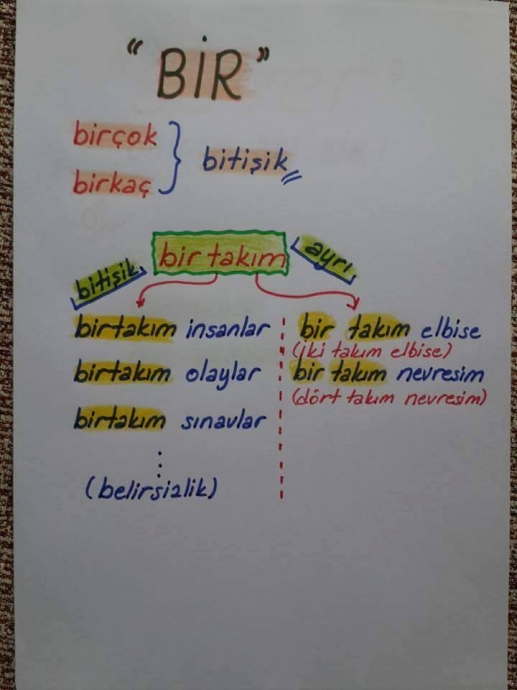 "BİR"
birçok
birkaç
bitişik
bir takım
bitişik
ayrı
birtakım insanlar
birtakım olaylar
birtakım sınavlar
(belirsizlik)
bir takım elbise
(iki takım elbise)
bir takım nevresim
(dört takım nevresim)